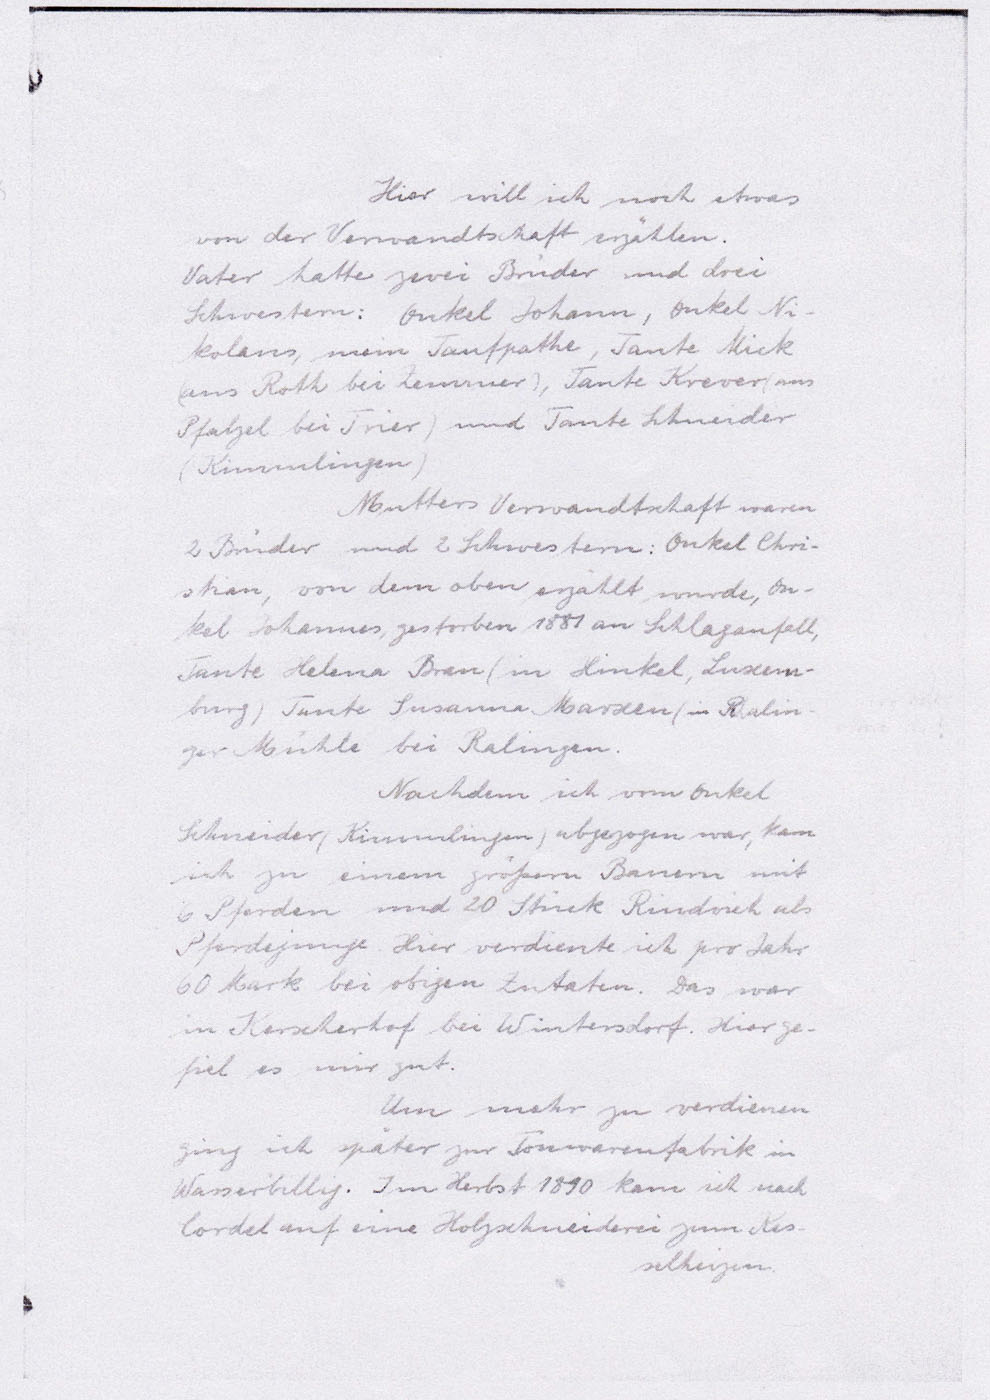 Hier will ich noch etwas
von der Verwandtschaft erzählen.
Vater hatte zwei Brüder und drei
Schwestern: Onkel Johann, Onkel Ni-
kolaus, mein Taufpathe, Tante Mick
(aus Roth bei Zemmer), Tante Krever (aus
Pfalzel bei Trier) und Tante Schneider
(Kimmlingen)
Mutters Verwandtschaft waren
2 Brüder und 2 Schwestern: Onkel Chri-
stian, von dem oben erzählt wurde, On-
kel Johannes, gestorben 1881 an Schlaganfall,
Tante Helena Bran (in Hinkel, Luxem-
burg) Tante Susanna Marxen (in Ralin-
ger Mühle bei Ralingen.
Nachdem ich vom Onkel
Schneider (Kimmlingen) abgezogen war, kam
ich zu einem größern Bauern mit
6 Pferden und 20 Stück Rindvieh als
Pferdejunge. Hier verdiente ich pro Jahr
60 Mark bei obigen Zutaten. Das war
in Kerscherhof bei Wintersdorf. Hier ge-
fiel es mir gut.
Um mehr zu verdienen
ging ich später zur Tonwarenfabrik in
Wasserbillig. Im Herbst 1890 kam ich nach
Cordel auf eine Holzschneiderei zum Kes-
selheizen.